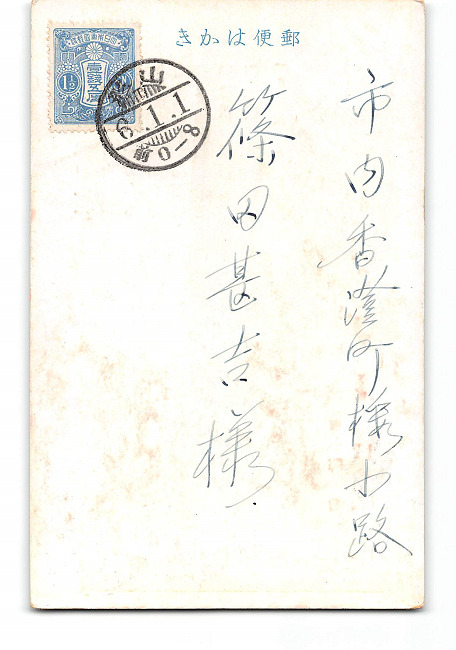 郵便はかき
市内香澄町桜小路
篠田甚吉様
大日本帝国郵便
壹錢五厘
1½
山
1.1
8-0